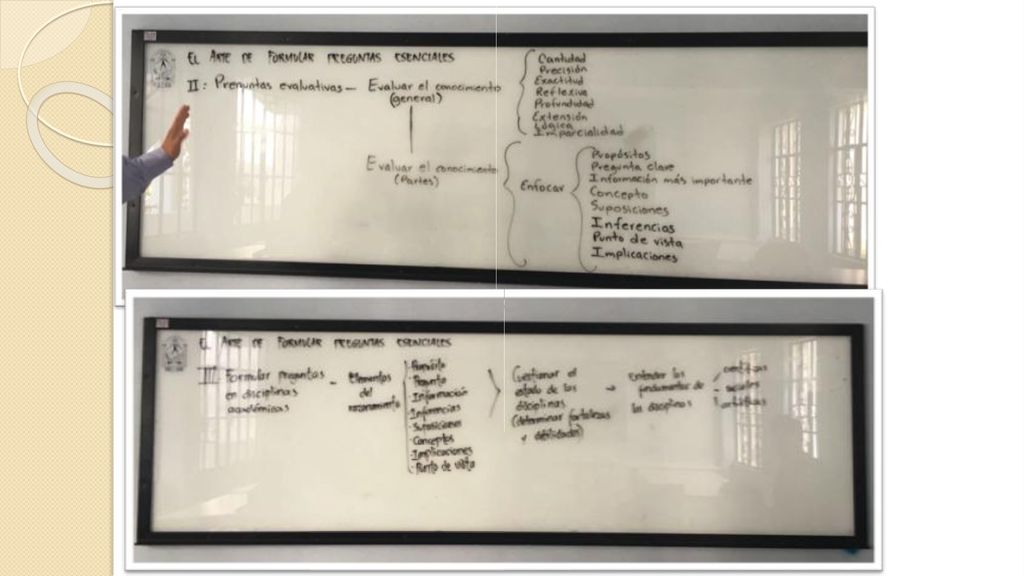 EL ARTE DE FORMULAR PREGUNTAS ESENCIALES
II: Preguntas evaluativas - Evaluar el conocimiento
(general)
Cantidad
Precisión
Exactitud
Reflexiva
Profundidad
Extensión
Lógica
Imparcialidad
Evaluar el conocimiento
(Partes)
Enfocar
Propósitos
Pregunta clave
Información más importante
Concepto
Suposiciones
Inferencias
Punto de vista
Implicaciones
EL ARTE DE FORMULAR PREGUNTAS ESENCIALES
III. Formular preguntas
en disciplinas
académicas
- Elementos
del
razonamiento
·Propósito
·Pregunta
·Información
·Inferencias
·Suposiciones
·Conceptos
·Implicaciones
·Punto de vista
Gestionar el
estado de las
disciplinas
(determinar fortalezas
y debilidades)
→ Entender los
fundamentos de
las disciplinas
científicas
- sociales
artísticas